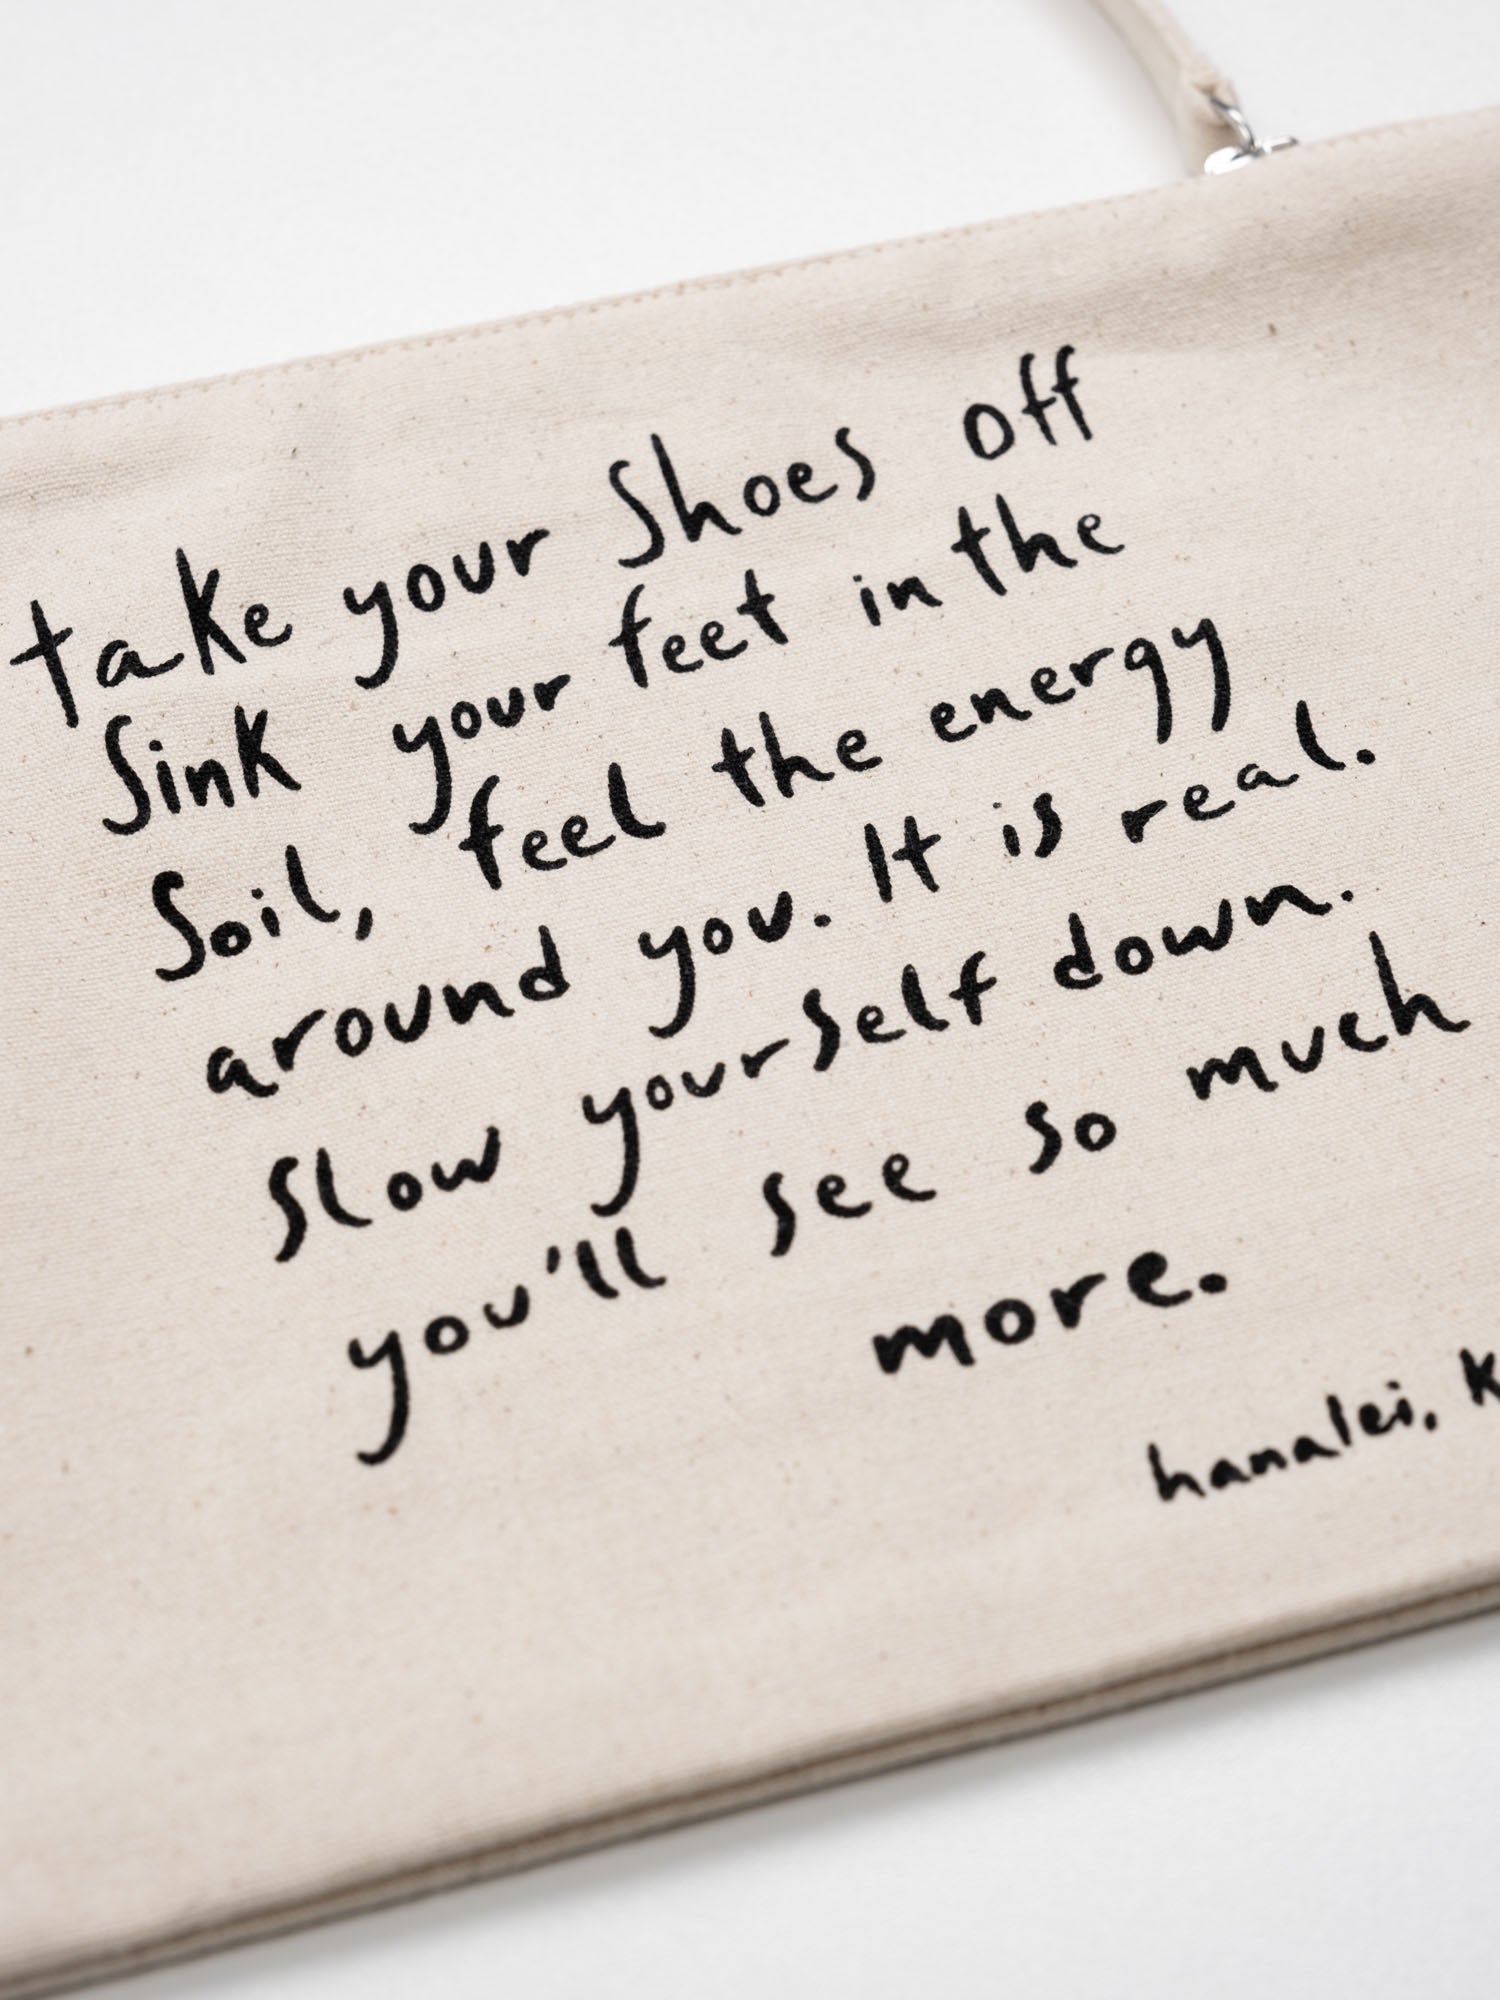 take your Shoes off
Sink your feet in the
Soil, feel the energy
around you. It is real.
Slow yourself down.
you'll see so much
more.
hanalei,